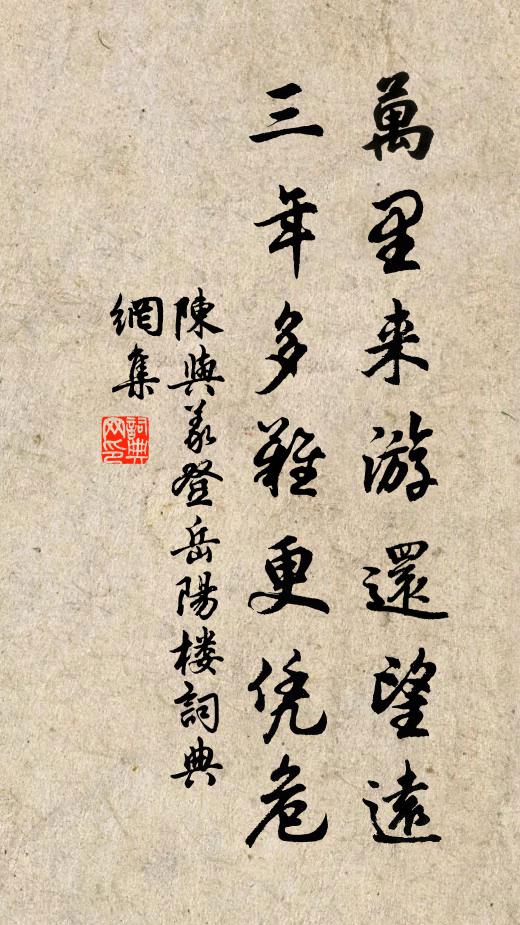 萬里来游還望遠
三年多難更凭危
陳與义登岳陽楼詞典
網集
詞典
网印